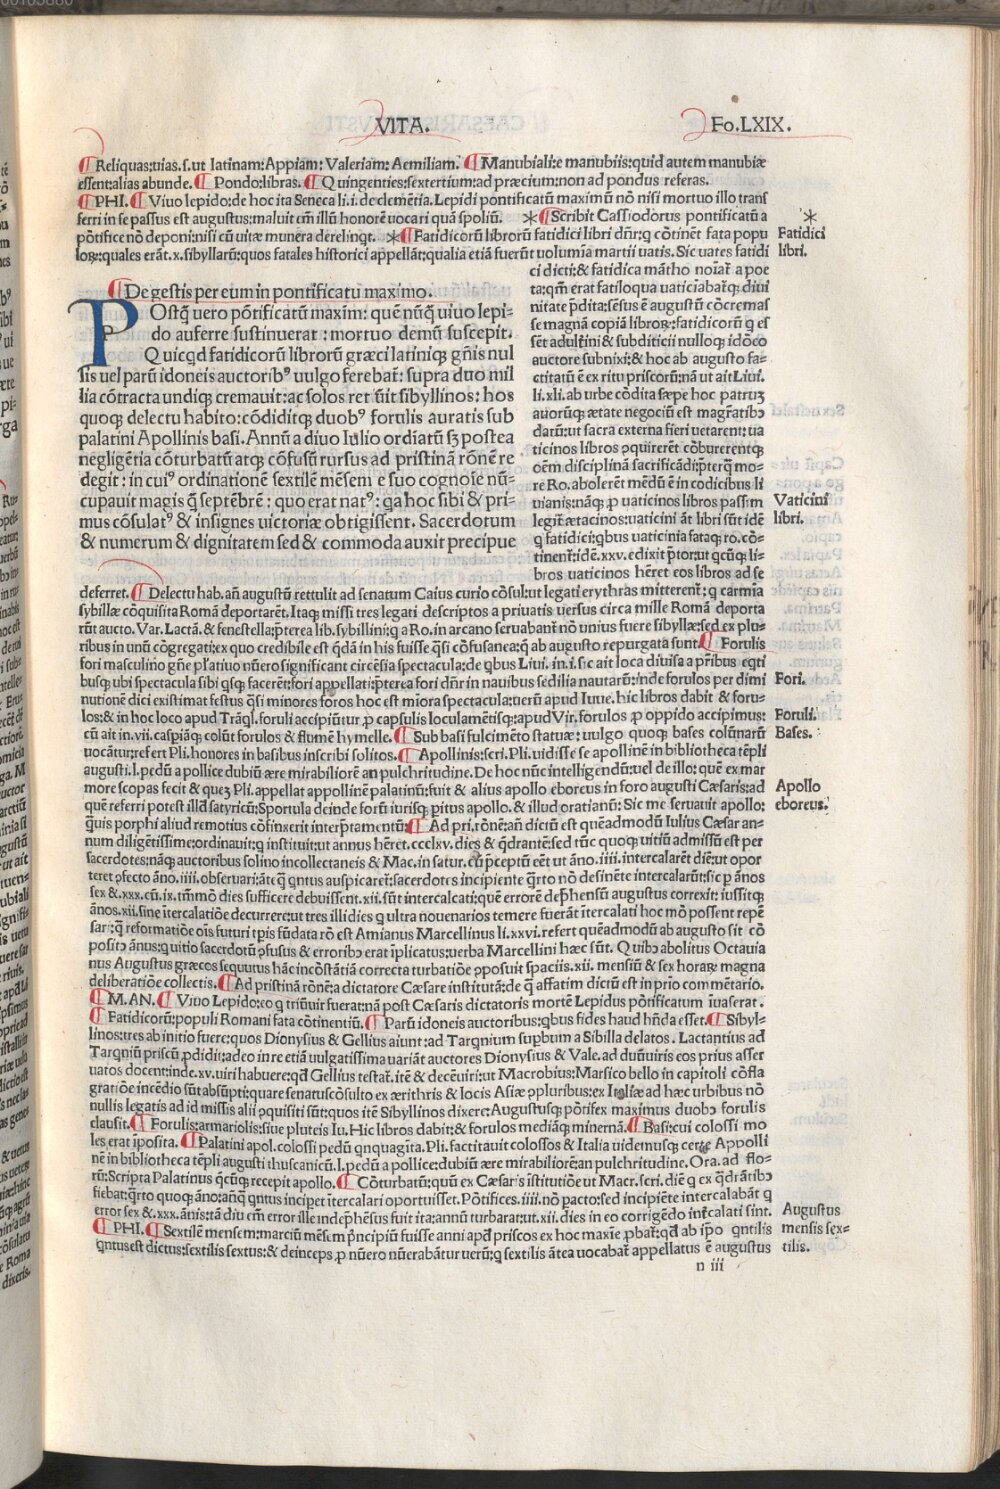 VITA. Fo.LXIX.
¶ Reliquas:uias.s.ut latinam:Appiam: Valeriam: Aemiliam. ¶ Manubiali:e manubiis:quid autem manubiæ
essent:alias abunde. ¶ Pondo:libras. ¶ Quingenties:sextertium:ad præcium:non ad pondus referas.
¶ PHI. ¶ Viuo lepido:de hoc ita Seneca li.i.de clemētia. Lepidi pontificatū maximū nō nisi mortuo illo transf
ferri in se passus est augustus:maluit em̄ illū honorē uocari quā spoliū. ✳ ¶ Scribit Cassiodorus pontificatū a
pōtifice nō deponi:nisi cū uitæ munera derelinqt. ✳ ¶ Fatidicorū librorū fatidici libri dn̄r:q cōtinēt fata popu
loꝝ:quales erāt.x.sibyllarū:quos fatales historici appellāt:qualia etiā fuerūt uolumīa martii uatis. Sic uates fatidi
Fatidici
libri.
ci dicti:& fatidica mātho noīat̄ a poe
ta:qm̄ erat fatiloqua uaticiabat̄q̧ diui
nitate p̄dita:sesus ē augustū cōcremas
se magnā copiā libroꝝ:fatidicorū q es
sēt adultīni & subditicii nulloq̧ idōeo
auctore subnixi:& hoc ab augusto fa=
ctitatū ē ex ritu priscorū:nā ut ait Liui.
li.xli.ab urbe cōdita sæpe hoc patruꝫ
auorūq̧ ætate negociū est magr̄atibꝰ
datū:ut sacra externa fieri uetarent:ua
ticinos libros pquirerēt cōbureretq̧
oēm disciplinā sacrificādi:p̄terq̄ mo=
re Ro.abolerēt mēdū ē in codicibus li
uianis:nāq̧ p uaticinos libros passim
legit̄ ætacinos:uaticini āt libri sūt idē
q fatidici:qbus uaticinia fataq̧ ro.cō=
tinent̄:idē.xxv.edixit p̄tor:ut qcūq̧ li=
bros uaticinos hēret eos libros ad se
Vaticini
libri.
¶ De gestis per eum in pontificatu maximo.
POstq̄ uero pōtificatū maxim: quē nūq̄ uiuo lepi=
do auferre sustinuerat: mortuo demū suscepit.
Quicqd fatidicorū librorū græci latiniq̧ gn̄is nul
lis uel parū idoneis auctoribꝰ uulgo ferebat̄: supra duo mil
lia cōtracta undiq̧ cremauit:ac solos retīuit sibyllinos: hos
quoq̧ delectu habito: cōdiditq̧ duobꝰ forulis auratis sub
palatini Apollinis basi. Annū a diuo Iulio ordiatū sꝫ postea
negligētia cōturbatū atq̧ cōfusū rursus ad pristinā rōnē re
degit: in cuiꝰ ordinatione sextilē mēsem e suo cognoīe nū=
cupauit magis q̄ septēbrē: quo erat natꝰ: qa hoc sibi & pri=
mus cōsulatꝰ & insignes uictoriæ obtigissent. Sacerdotum
& numerum & dignitatem sed & commoda auxit præcipue
deferret. ¶ Delectu hab.añ augustū rettulit ad senatum Caius curio cōsul:ut legati erythras mitterent̄: q carmīa
sybillæ cōquisita Romā deportarēt. Itaq̧ missi tres legati descriptos a priuatis uersus circa mille Romā deporta
rūt aucto. Var. Lactā. & fenestella:p̄terea lib.sybillini:q a Ro.in arcano seruabant̄ nō unius fuere sibyllæ:sed ex plu=
ribus in unū cōgregati:ex quo credibile est qdā in his fuisse qsi cōfusanea:q̄ ab augusto repurgata sunt. ¶ Forulis
fori masculino gn̄e plātiuo nūero significant circēsia spectacula:de qbus Liui.in.i.sic ait loca diuisa p̄ribus eqti
busq̧ ubi spectacula sibi qsq̧ facerēt:fori appellati:p̄terea fori dn̄r in nauibus sedilia nautarū:inde forulos per dimi
nutionē dici existimat festus q̄si minores foros hoc est miora spectacula:uerū apud Iuue.hic libros dabit & foru=
los:& in hoc loco apud Trāql.foruli accipiūtur p capsulis loculamētisq̧:apud Vir.forulos p oppido accipimus:
cū ait in.vii.caspiāq̧ colūt forulos & flumē hymelle. ¶ Sub basi fulcimēto statuæ: uulgo quoq̧ bases colūnarū
uocātur:refert Pli.honores in basibus inscribi solitos. ¶ Apollinis:scri.Pli.uidisse se apollinē in bibliotheca tēpli
augusti.l.pedū a pollice dubiū ære mirabiliorē an pulchritudine. De hoc nūc intelligendū:uel de illo: quē ex mar
more scopas fecit & queꝫ Pli.appellat appollinē palatinū:fuit & alius apollo eboreus in foro augusti Cæsaris:ad
quē referri potest illd satyricū:Sportula deinde forū iurisq̧ pitus apollo.& illud oratianū: Sic me seruauit apollo:
q̄uis porphi aliud remotius cōfinxerit interp̄tamentū: ¶ Ad pri.rōnē:añ dictū est quēadmodū Iulius Cæsar an=
num diligētissime:ordinauit:q instituit:ut annus hēret.ccclxv.dies & qdrantē:sed tūc quoq̧ uitiū admissū est per
sacerdotes:nāq̧ auctoribus solino incollectaneis & Mac.in satur.cū p̄ceptū eēt ut āno.iiii.intercalarēt diē:ut opor
teret pfecto āno.iiii.obseruari:āteq̄ qntus auspicaret̄:sacerdotes incipiente q̄rto nō desinēte intercalarūt:sic p ānos
sex &.xxx.cū.ix.tm̄mō dies sufficere debuissent.xii.sūt intercalcati:quē errorē dep̄hensū augustus correxit:iussitq̧
ānos.xii.sine ītercalatiōe decurrere:ut tres illi dies q ultra nouenarios temere fuerāt itercalati hoc mō possent repē
sari:q̄ reformatiōe oīs futuri tp̄is fūdata rō est Amianus Marcellinus li.xxvi.refert quēadmodū ab augusto sit cō
positꝰ ānus:q uitio sacerdotū pfusus & erroribꝰ erat īplicatus:uerba Marcellini hæc sūt. Quibꝰ abolitus Octauia
nus Augustus græcos sequutus hāc incōstātiā correcta turbatiōe pposuit spaciis.xii. mensiū & sex horaꝝ magna
deliberatiōe collectis. ¶ Ad pristinā rōnē:a dictatore Cæsare institutā:de q̄ affatim dictū est in prio cōmētario.
¶ M.AN. ¶ Viuo Lepido:eo q triūuir fuerat:nā post Cæsaris dictatoris mortē Lepidus pōtificatum īuaserat.
¶ Fatidicorū:populi Romani fata cōtinentiū. ¶ Parū idoneis auctoribus:qbus fides haud hn̄da esset. ¶ Sibyl=
linos:tres ab initio fuere:quos Dionysius & Gellius aiunt:ad Tarqnium supbum a Sibilla delatos. Lactantius ad
Tarqniū priscū pdidit:adeo in re etiā uulgatissima uariāt auctores Dionysius & Vale.ad duūuiris eos prius asser
uatos docent:inde.xv.uiri habuere:qd Gellius testat̄.itē & decēuiri:ut Macrobius:Marsico bello in capitoli cōfla
gratiōe incēdio sūt absūpti:quare senatuscōsulto ex ærithris & locis Asiæ ppluribus:ex Italiæ ad hæc urbibus nō
nullis legatis ad id missis alii pquisiti sūt:quos itē Sibyllinos dixere:Augustusq̧ pōtifex maximus duobꝰ forulis
clausit. ¶ Forulis:armariolis:siue pluteis Iu.Hic libros dabit:& forulos mediāq̧ minernā. ¶ Basi:cui colossi mo
les erat īposita. ¶ Palatini apol.colossi pedū qnquagīta.Pli.factitauit colossos & Italia uidemusq̧ certe Appolli
nē in bibliotheca tēpli augusti thuscanicū.l.pedū a pollice:dubiū ære mirabiliorē:an pulchritudine.Ora.ad flo=
rū:Scripta Palatinus qcūq̧ recepit apollo. ¶ Cōturbatū:quū ex Cæsaris īstitutiōe ut Mac.scri.diē q ex qdrātibꝰ
fiebat:q̄rto quoq̧ āno:añq̄ qntus incipet itercalari oportuisset.Pōtifices.iiii.nō pacto:sed incipiēte intercalabāt q
error sex &.xxx.ānis:tā diu cm̄ error ille indep̄hēsus fuit ita:annū turbarat:ut.xii.dies in eo corrigēdo īncalati sint.
¶ PHI. ¶ Sextilē mensem:marciū mēsem p̄ncipiū fuisse anni apd priscos ex hoc maxīe pbat̄:qd ab īpo qntilis
qntus est dictus:sextilis sextus:& deinceps p nūero nūerabātur uerū:q sextilis ātea uocabat̄ appellatus ē augustus
Fori.
Foruli.
Bases.
Apollo
eboreus.
Augustus
mensis sex=
tilis.
n iii